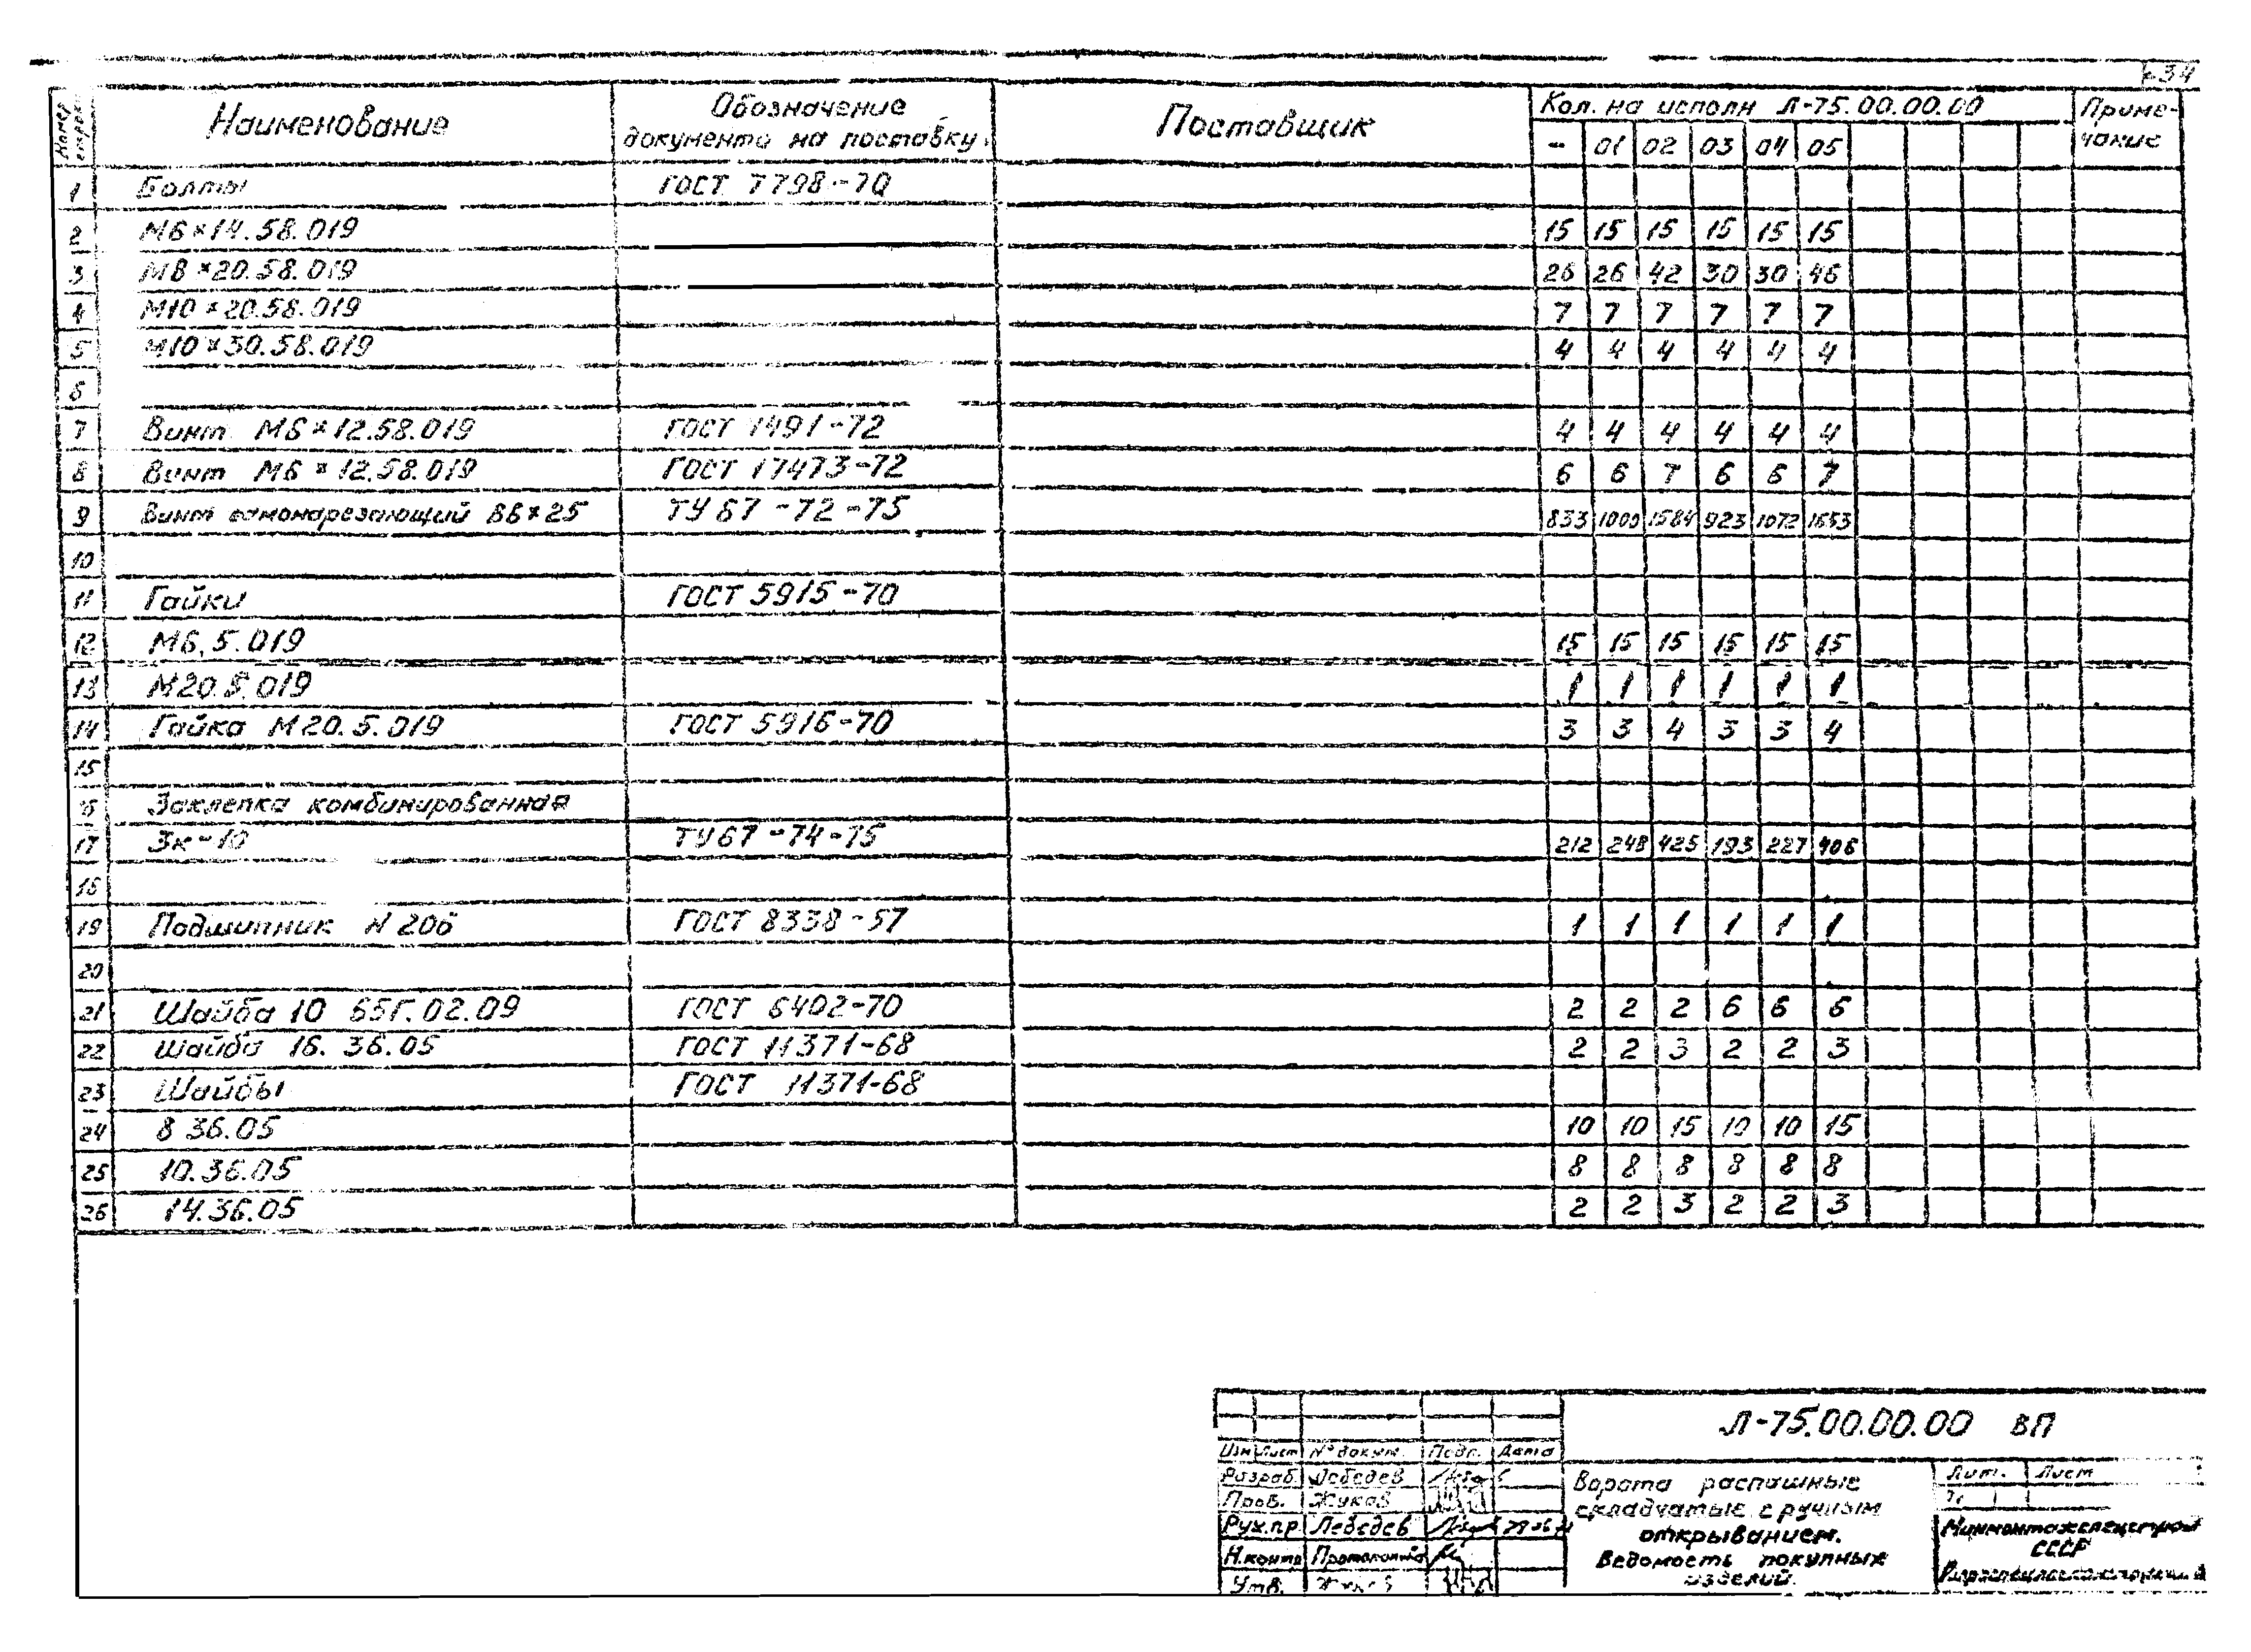 34
Номер строки Наименование Обозначение документа на поставку Поставщик Кол. на исполн Л-75.00.00.00 Примечание
- 01 02 03 04 05
1 Болты ГОСТ 7798-70
2 М6×14.58.019 15 15 15 15 15 15
3 М8×20.58.019 26 26 42 30 30 46
4 М10×20.58.019 7 7 7 7 7 7
5 М10×30.58.019 4 4 4 4 4 4
6
7 Винт М6×12.58.019 ГОСТ 1491-72 4 4 4 4 4 4
8 Винт М6×12.58.019 ГОСТ 17473-72 6 6 7 6 6 7
9 Винт самонарезающий В6×25 ТУ 67-72-75 833 1000 1584 923 1072 1653
10
11 Гайки ГОСТ 5915-70
12 М6.5.019 15 15 15 15 15 15
13 М20.5.019 1 1 1 1 1 1
14 Гайка М20.5.019 ГОСТ 5916-70 3 3 4 3 3 4
15
16 Заклепка комбинированная
17 Зк-10 ТУ67-74-75 212 248 425 193 227 406
18
19 Подшипник N 206 ГОСТ 8338-57 1 1 1 1 1 1
20
21 Шайба 10 65Г.02.09 ГОСТ 6402-70 2 2 2 6 6 6
22 Шайба 16.36.05 ГОСТ 11371-68 2 2 3 2 2 3
23 Шайбы ГОСТ 11371-68
24 8 36.05 10 10 15 10 10 15
25 10.36.05 8 8 8 8 8 8
26 14.36.05 2 2 3 2 2 3
Л-75.00.00.00 ВП
Изм Лист № докум. Подп. Дата
Разраб. Лебедев
Пров. Жуков
Рук.пр Лебедев
Н.контр
Утв. Жуков
Ворота распашные
складчатые с ручным
открыванием.
Ведомость покупных
изделий.
Лит. Лист
Минмонтажспецстрой
СССР